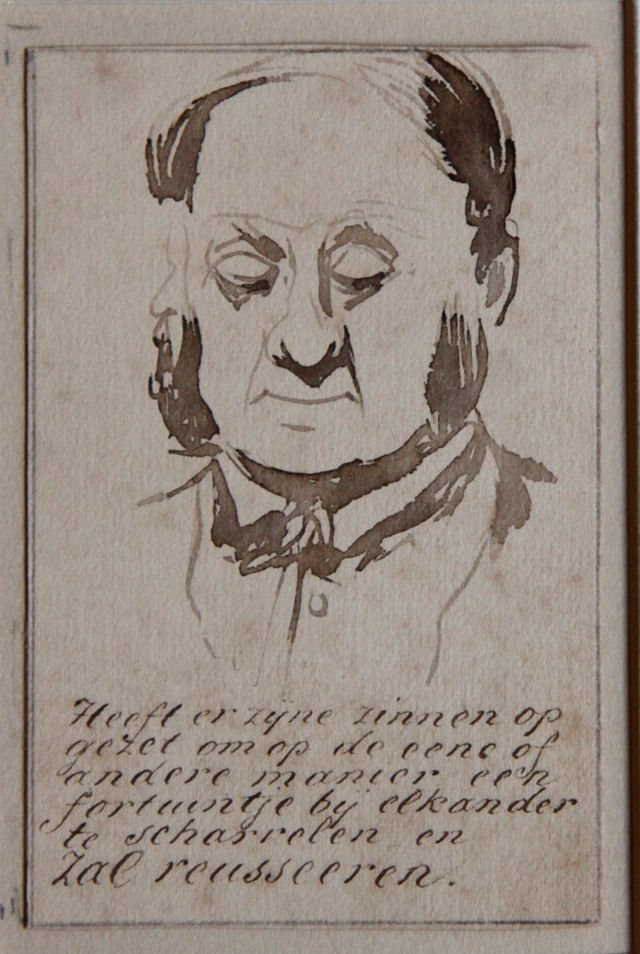 Heeft er zyne zinnen op
gezet om op de eene of
andere manier een
fortuintje by elkander
te scharrelen en
Zal reusseeren.